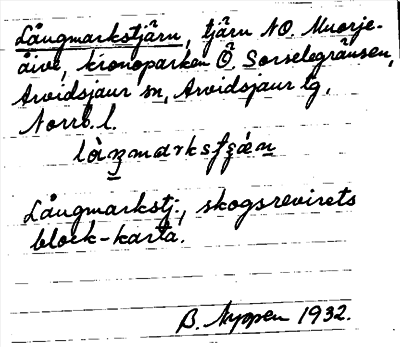 Långmarkstjärn, tjärn NO. Muorje-
åive, kronoparken Ö. Sorselegränsen,
Arvidsjaur sn, Arvidsjaur tg,
Norrb. l.
Långmarkstj., skogsrevirets
block-karta.
B. Nyppen 1932.